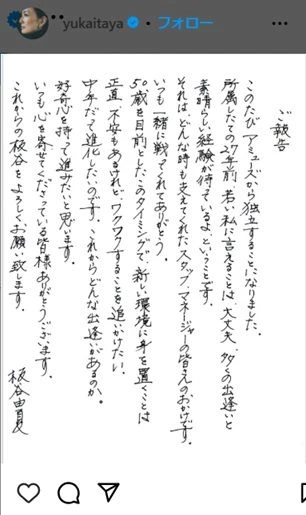 yukaitaya ・ フォロー
ご報告
このたび アミューズから独立することになりました。
所属したての27年前、若い私に言えることは、大丈夫、多くの出逢いと
素晴らしい経験が待っているよ、ということです。
それは、どんな時も支えてくれたスタッフ、マネージャーの皆さんのおかげです。
いつも一緒に戦ってくれてありがとう。
50歳を目前としたこのタイミングで、新しい環境に身を置くことは
正直、不安もあるけれど、ワクワクすることを追いかけたい。
中年だって進化したいのです。これからどんな出逢いがあるのか。
好奇心を持って進みたいと思います。
いつも心を寄せてくださっている皆様ありがとうございます。
これからの板谷をよろしくお願い致します。
板谷由夏